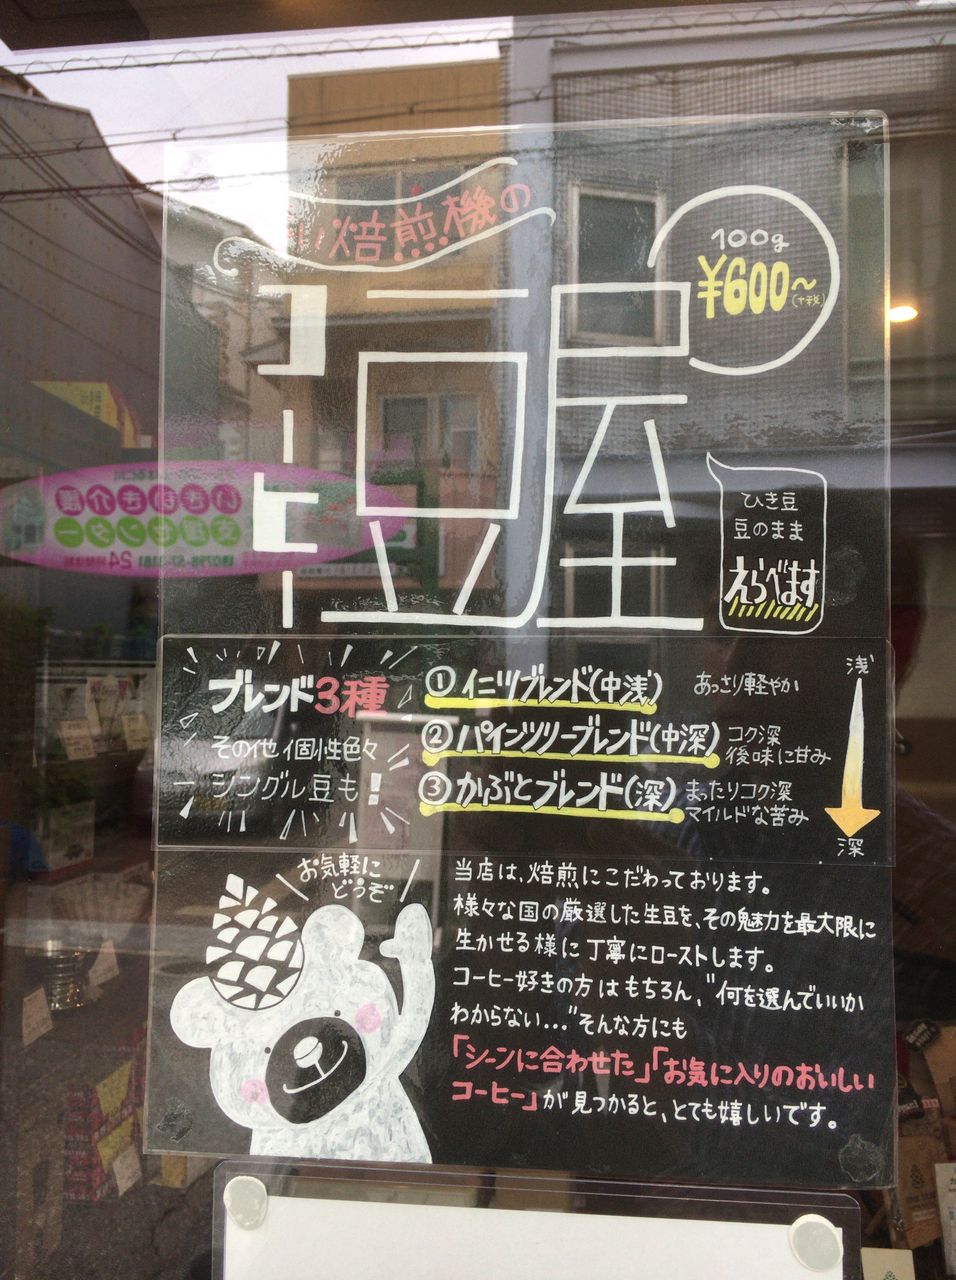 焙煎機の
コーヒー
豆屋
100g
¥600〜
(+税)
ひき豆
豆のまま
えらべます
ブレンド3種
その他個性色々
シングル豆も!
① ブレンド(中浅) あっさり軽やか
② パインツリーブレンド(中深) コク深
後味に甘み
③ かぶとブレンド(深) まったりコク深
マイルドな苦み
浅
深
お気軽に
どうぞ
当店は、焙煎にこだわっております。
様々な国の厳選した生豆を、その魅力を最大限に
生かせる様に丁寧にローストします。
コーヒー好きの方はもちろん、"何を選んでいいか
わからない..."そんな方にも
「シーンに合わせた」「お気に入りのおいしい
コーヒー」が見つかると、とても嬉しいです。